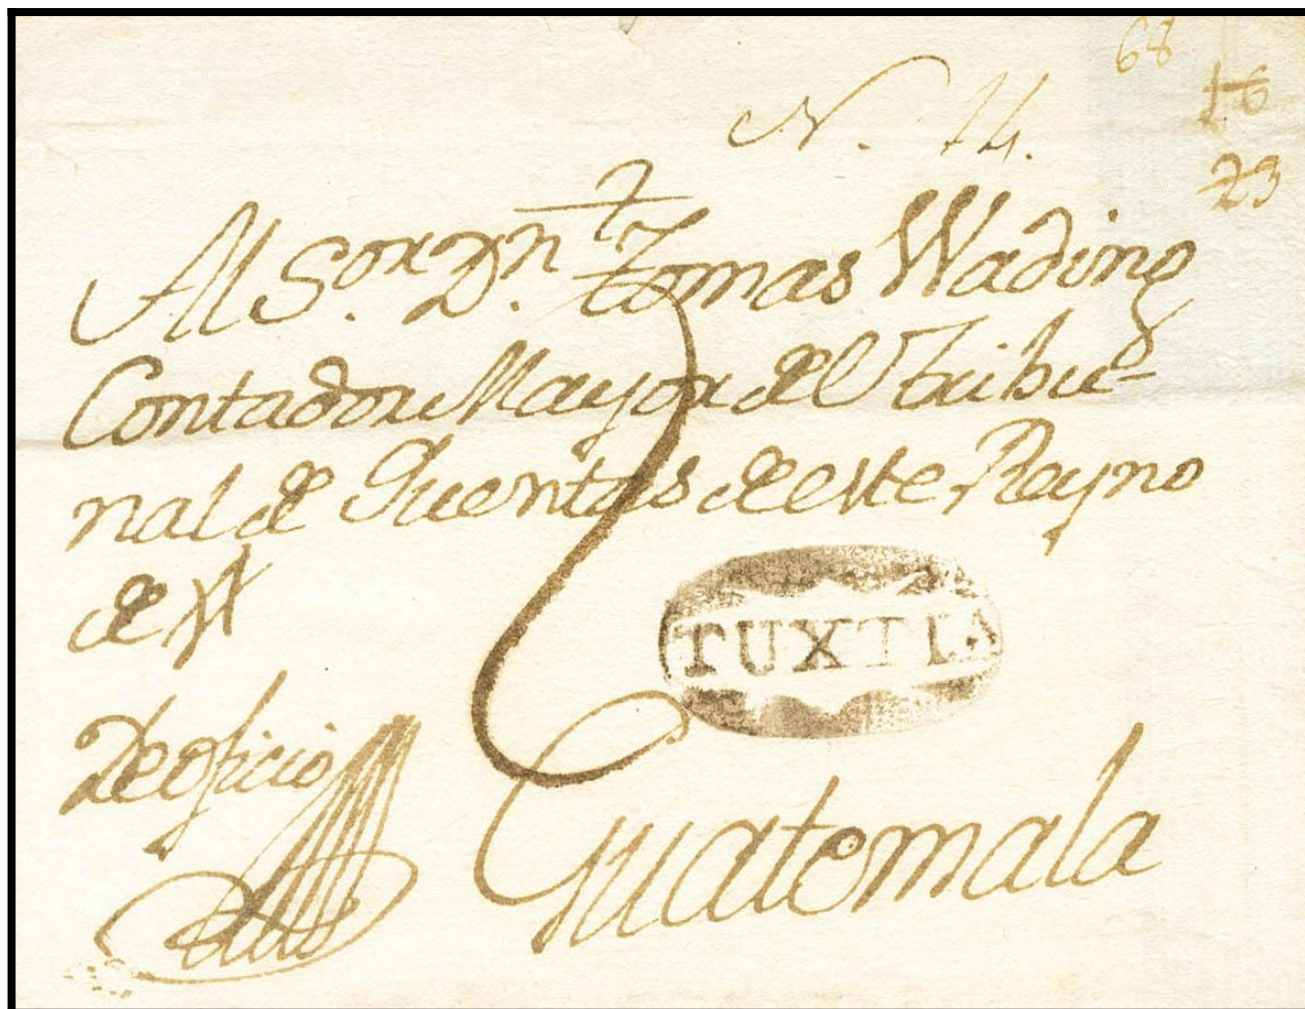 68
16
N. 14.
23
Al S.or D.n Tomas Wading
Contador Mayor del tribu-
nal de Quentas de este Reyno
de
TUXTLA
De oficio
Guatemala